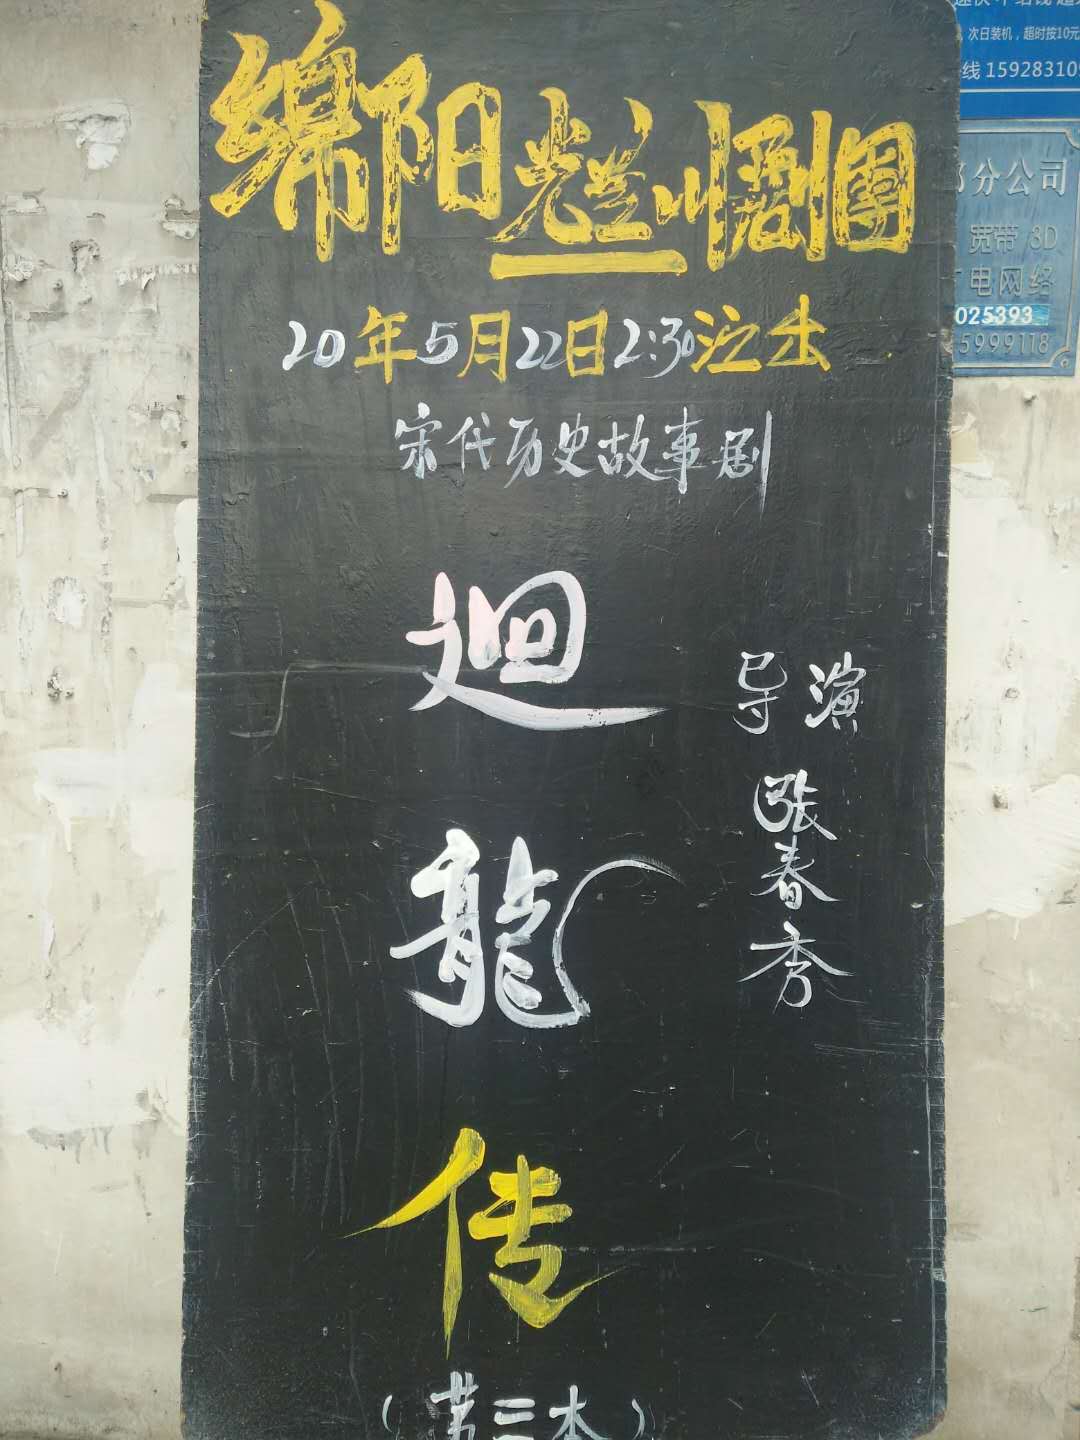 绵阳光兰川剧團
20年5月22日2:30演出
宋代历史故事剧
迴龍传
（第三本）
导演
張春秀
次日装机，超时按10元
线 159283109
分公司
宽带
电网络
025393
5999118